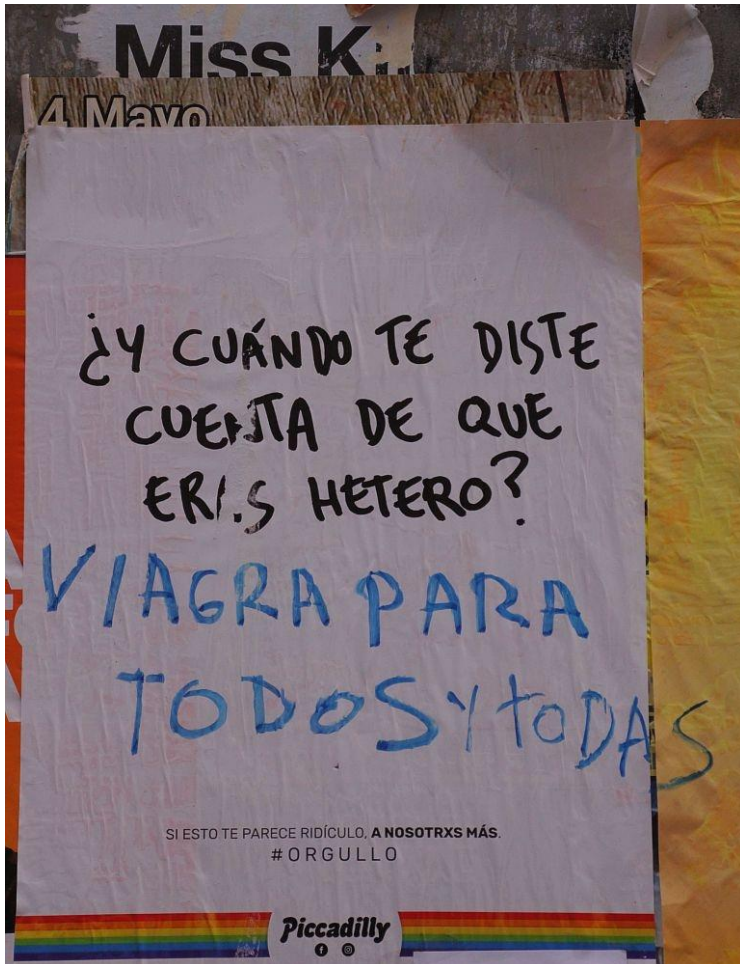 Miss
4 Mayo
¿Y CUÁNDO TE DISTE
CUENTA DE QUE
ERES HETERO?
VIAGRA PARA
TODOS Y toDAS
SI ESTO TE PARECE RIDÍCULO, A NOSOTRXS MÁS.
#ORGULLO
Piccadilly